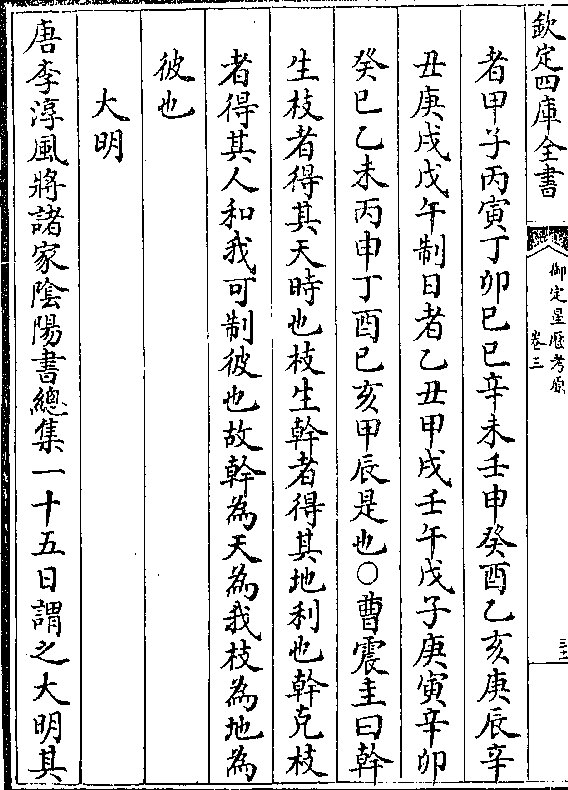 欽定四庫全書
御定星厯考原
卷三
三十二
者甲子丙寅丁卯己巳辛未壬申癸酉乙亥庚辰辛
丑庚戌戊午制日者乙丑甲戌壬午戊子庚寅辛卯
癸巳乙未丙申丁酉己亥甲辰是也○曹震圭曰幹
生枝者得其天時也枝生幹者得其地利也幹克枝
者得其人和我可制彼也故幹為天為我枝為地為
彼也
大明
唐李淳風將諸家陰陽書總集一十五日謂之大明其